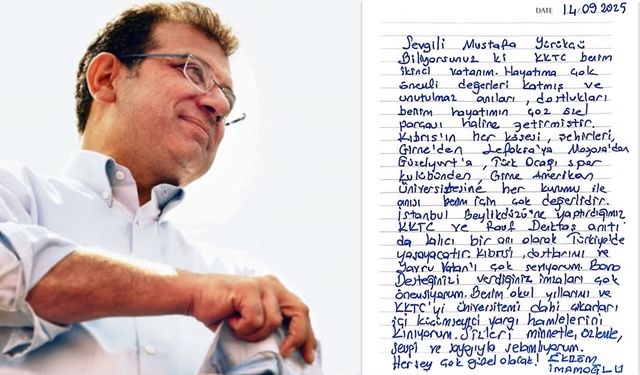 DATE 14.09.2025
Sevgili Mustafa Yürükçü
Biliyorsunuz ki KKTC benim
ikinci vatanım. Hayatıma çok
önemli değerleri katmış ve
unutulmaz anıları, dostlukları
benim hayatımın çoz özel
parçası haline getirmiştir.
Kıbrıs'ın her köşesi, şehirleri,
Girne'den Lefkoşa'ya Magosa'dan
Güzelyurt'a, Türk Ocağı spor
kulübünden, Girne Amerikan
Üniversitesine her kurumu ile
anısı benim için çok değerlidir.
İstanbul Beylikdüzü'ne yaptırdığımız
KKTC ve Rauf Denktaş anıtı
da kalıcı bir anı olarak Türkiye'de
yaşayacaktır. Kıbrısı, dostlarımı ve
Yavru Vatan'ı çok seviyorum. Bana
Desteğinizi verdiğiniz imzaları çok
önemsiyorum. Benim okul yıllarımı ve
KKTC'yi üniversitemi dahi çıkarları
içi küçümseyici yargı hamlelerini
kınıyorum. Sizleri minnetle, özlemle,
sevgi ve saygıyla selamlıyorum.
Herşey çok güzel olacak! EKREM
İMAMOĞLU